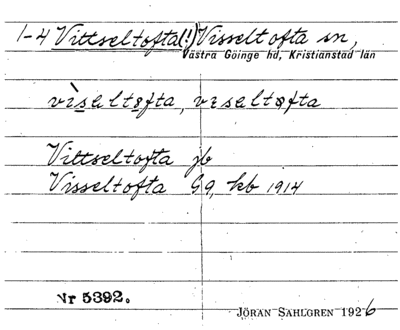 1-4 Vittseltofta(!) Visseltofta sn,
Västra Göinge hd, Kristianstad län
vìsəltofta, vɪsəltofta
Vittseltofta jb
Visseltofta GG, kb 1914
Nr 5392.
JÖRAN SAHLGREN 1926